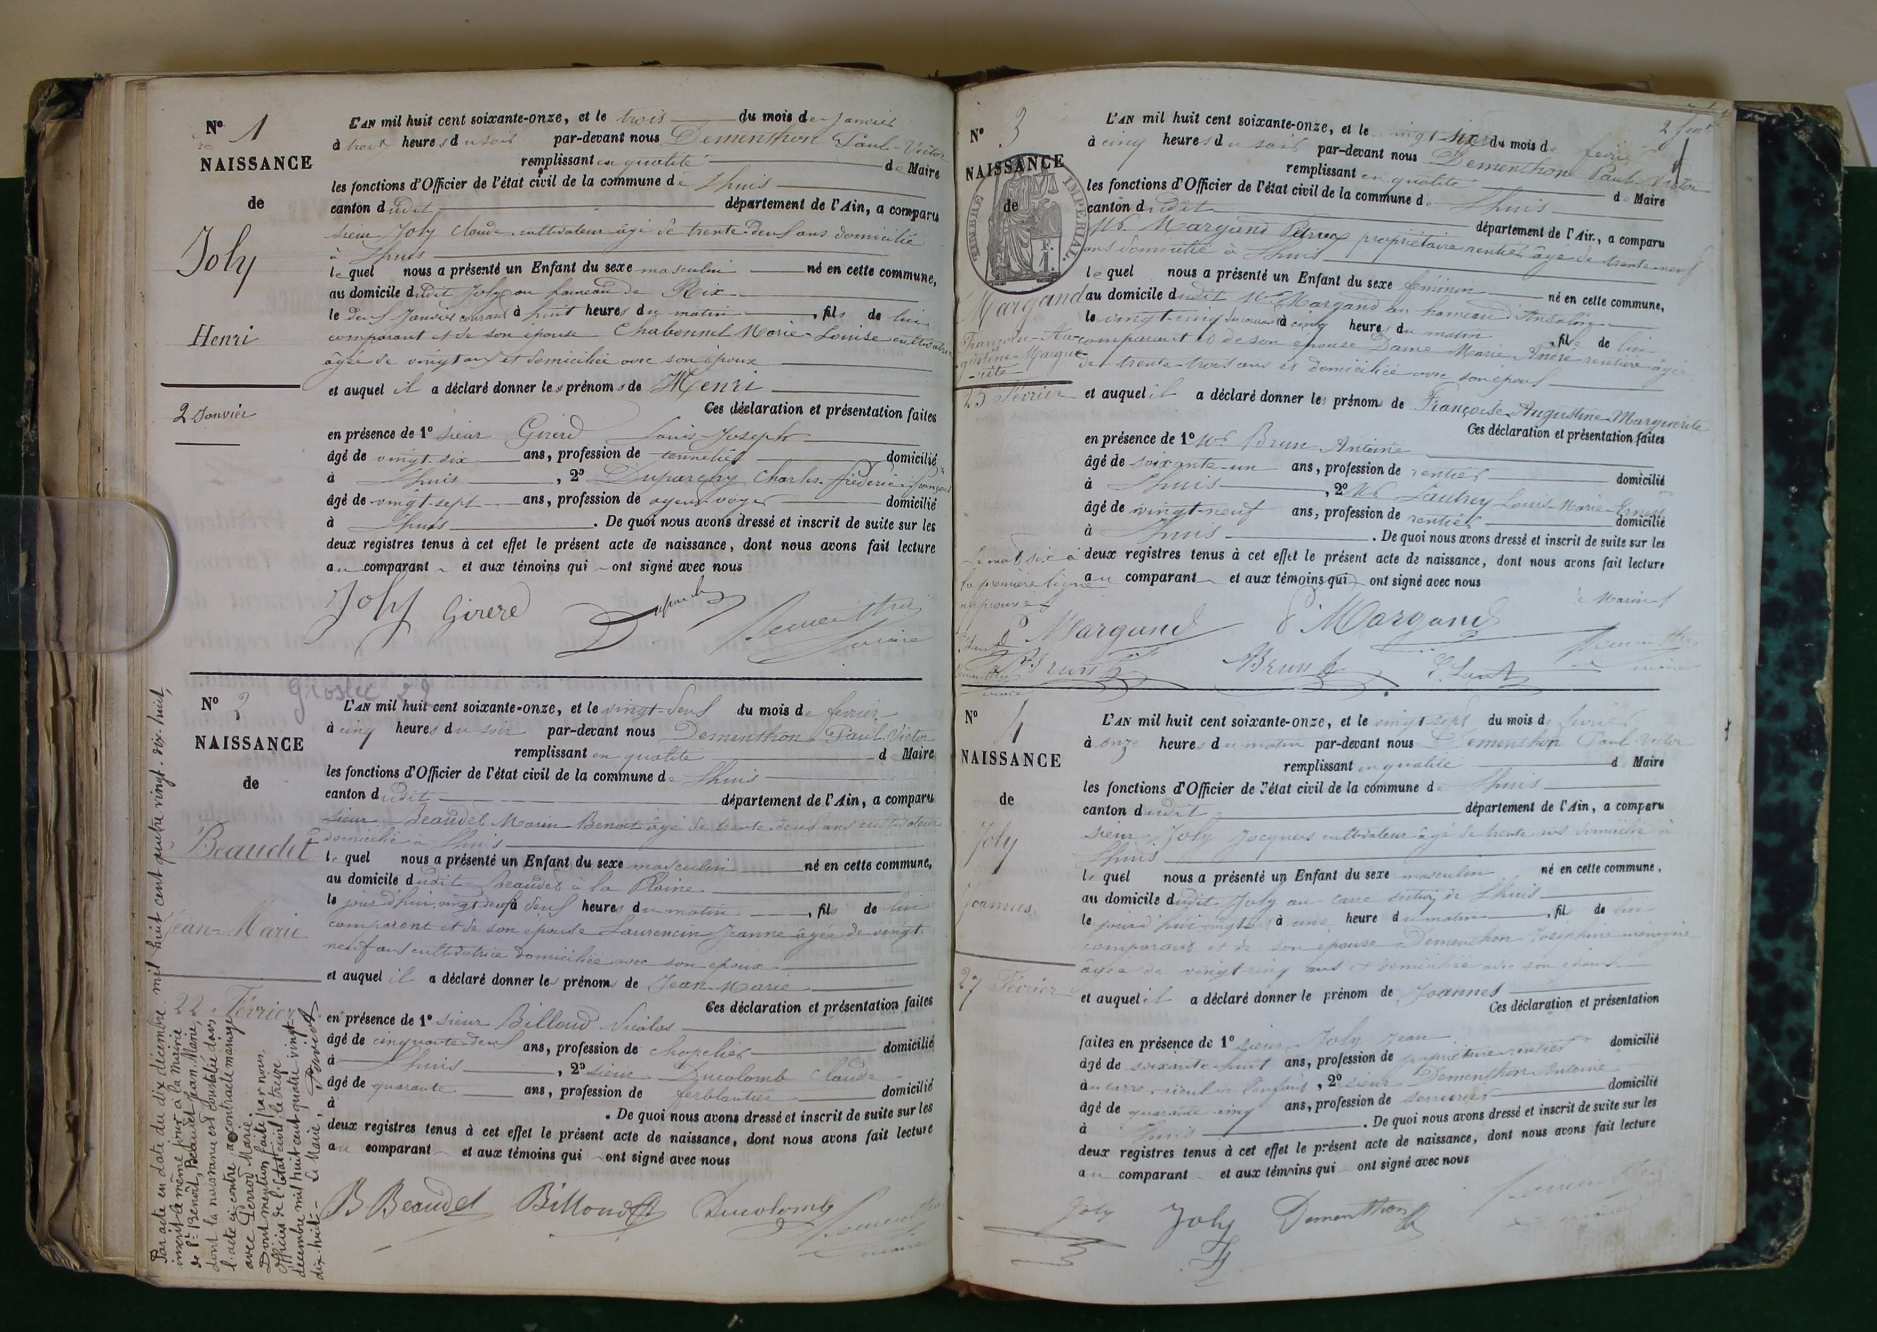 N° 1
NAISSANCE
de
Joly
Henri
2 Janvier
L'AN mil huit cent soixante-onze, et le trois du mois de janvier
à huit heures du soir par-devant nous Dementhon Paul-Victor
remplissant en qualité de Maire
les fonctions d'Officier de l'état civil de la commune de Lhuis
canton dudit département de l'Ain, a comparu
sieur Joly Claude cultivateur âgé de trente-deux ans domicilié
à Lhuis
lequel nous a présenté un Enfant du sexe masculin né en cette commune,
au domicile dudit Joly au hameau de Rix
le deux Janvier courant à huit heures du matin, fils de lui
comparant et de son épouse Chabonnet Marie-Louise cultivatrice
âgée de vingt ans et domiciliée avec son époux
et auquel il a déclaré donner les prénoms de Henri
Ces déclaration et présentation faites
en présence de 1° sieur Girerd Louis Joseph
âgé de vingt-six ans, profession de tonnelier domicilié
à Lhuis, 2° Duparchy Charles frédéric françois
âgé de vingt-sept ans, profession de agent-voyer domicilié
à Lhuis. De quoi nous avons dressé et inscrit de suite sur les
deux registres tenus à cet effet le présent acte de naissance, dont nous avons fait lecture
au comparant et aux témoins qui ont signé avec nous
Joly Girerd
N° 2
NAISSANCE
de
Beaudet
Jean-Marie
22 Février
L'AN mil huit cent soixante-onze, et le vingt-deux du mois de fevrier
à cinq heures du soir par-devant nous Dementhon Paul-Victor
remplissant en qualité de Maire
les fonctions d'Officier de l'état civil de la commune de Lhuis
canton dudit département de l'Ain, a comparu
sieur Beaudet Marin Benoit âgé de trente-deux ans cultivateur
domicilié à Lhuis
lequel nous a présenté un Enfant du sexe masculin né en cette commune,
au domicile dudit Beaudet à la Plaine
le jour d'hui vingt-deux à deux heures du matin, fils de lui
comparant et de son épouse Laurencin Jeanne âgée de vingt
neuf ans cultivatrice domiciliée avec son époux
et auquel il a déclaré donner les prénoms de Jean-Marie
Ces déclaration et présentation faites
en présence de 1° sieur Billoud Nicolas
âgé de cinquante-deux ans, profession de chapelier domicilié
à Lhuis, 2° sieur Ducolomb Claude
âgé de quarante ans, profession de ferblantier domicilié
à . De quoi nous avons dressé et inscrit de suite sur les
deux registres tenus à cet effet le présent acte de naissance, dont nous avons fait lecture
au comparant et aux témoins qui ont signé avec nous
B Beaudet Billoud Ducolomb
Par acte en date du dix décembre mil huit cent quatre vingt-dix-huit,
inscrit le même jour à la mairie
de St Benoît, Beaudet Jean Marie,
dont la naissance est constatée dans
l'acte ci-contre a contracté mariage
avec Perrod Marie.
Dont mention faite par nous
Officier de l'état civil le treize
décembre mil huit cent quatre vingt
dix-huit. Le Maire,
N° 3
NAISSANCE
de
TIMBRE IMPÉRIAL
Margand
Françoise-Au-
gustine-Margue-
rite
25 Février
2 feuil
L'AN mil huit cent soixante-onze, et le vingt-six du mois de fevrier
à cinq heures du soir par-devant nous Dementhon Paul-Victor
remplissant en qualité de Maire
les fonctions d'Officier de l'état civil de la commune de Lhuis
canton dudit département de l'Ain, a comparu
Mr Margand propriétaire rentier âgé de trente-neuf
ans domicilié à Lhuis
lequel nous a présenté un Enfant du sexe féminin né en cette commune,
au domicile dudit Mr Margand au hameau d'Ansolin
le vingt-cinq du courant à cinq heures du matin, fille de lui
comparant & de son épouse Dame Marie André rentière âgée
de trente-trois ans et domiciliée avec son époux
et auquel il a déclaré donner les prénom de Françoise Augustine Marguerite
Ces déclaration et présentation faites
en présence de 1° Mr Brun Antoine
âgé de soixante-un ans, profession de rentier domicilié
à Lhuis, 2° Mr Lautrey Louis-Marie-Ernest
âgé de vingt-neuf ans, profession de rentier domicilié
à Lhuis. De quoi nous avons dressé et inscrit de suite sur les
deux registres tenus à cet effet le présent acte de naissance, dont nous avons fait lecture
au comparant et aux témoins qui ont signé avec nous
Le mot six à
la première ligne
approuvé
Margand P Margand
Brun Brun
N° 4
NAISSANCE
de
Joly
joannes
27 Février
L'AN mil huit cent soixante-onze, et le vingt-sept du mois de février
à onze heures du matin par-devant nous Dementhon Paul-Victor
remplissant en qualité de Maire
les fonctions d'Officier de l'état civil de la commune de Lhuis
canton dudit département de l'Ain, a comparu
sieur Joly Jacques cultivateur âgé de trente ans domicilié à
Lhuis
lequel nous a présenté un Enfant du sexe masculin né en cette commune,
au domicile dudit Joly de Lhuis
le jour d'hui vingt-sept à une heure du matin, fils de lui
comparant et de son épouse Dementhon Joséphine ménagère
âgée de vingt-cinq ans et domiciliée avec son époux
et auquel il a déclaré donner le prénom de Joannes
Ces déclaration et présentation
faites en présence de 1° sieur Joly Jean
âgé de soixante-huit ans, profession de propriétaire rentier domicilié
à , 2° sieur Dementhon Antoine
âgé de quarante-cinq ans, profession de serrurier domicilié
à Lhuis. De quoi nous avons dressé et inscrit de suite sur les
deux registres tenus à cet effet le présent acte de naissance, dont nous avons fait lecture
au comparant et aux témoins qui ont signé avec nous
Joly Joly Dementhon